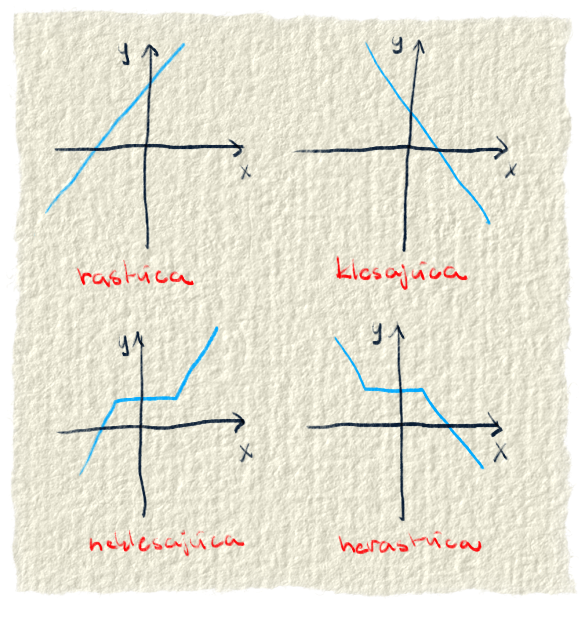 y
x
rastúca
y
x
klesajúca
y
x
neklesajúca
y
x
nerastúca